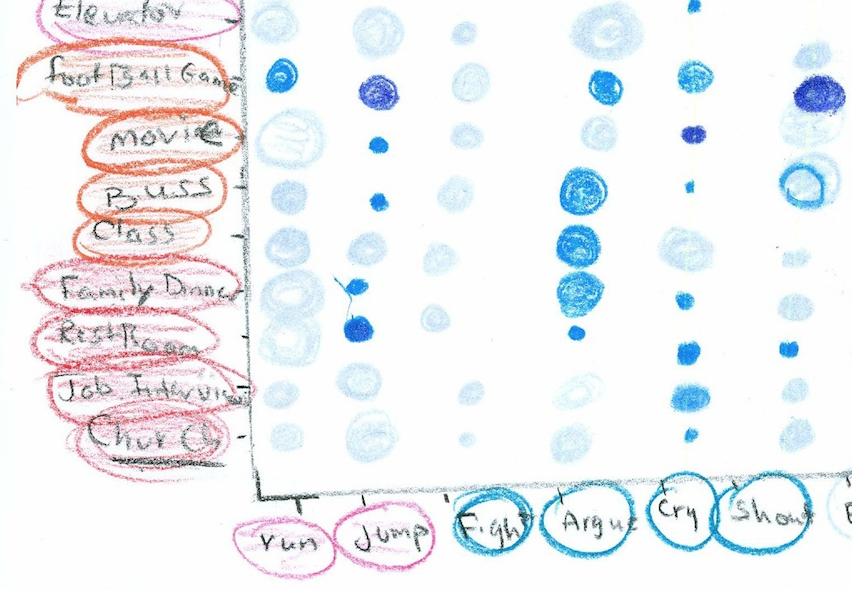 Elevator
FootBall Game
movie
Buss
Class
Family Dinner
RestRoom
Job Interview
Church
run Jump Fight Argue Cry Shout